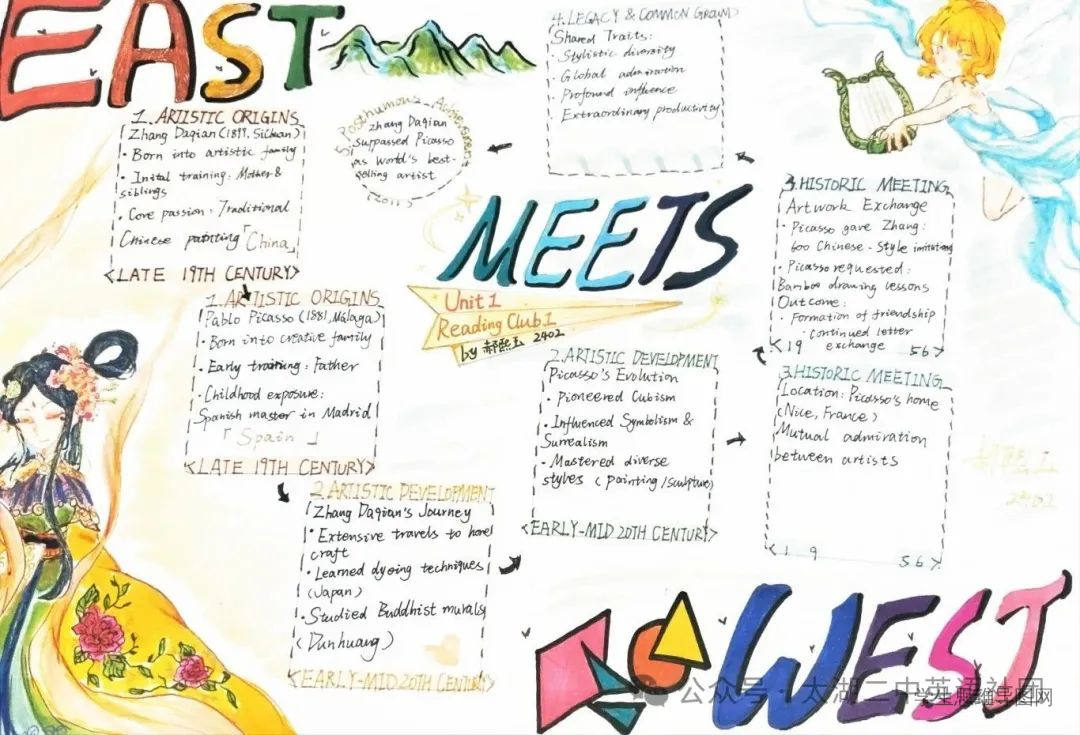 EAST
1. ARTISTIC ORIGINS
Zhang Daqian (1899, Sichuan)
· Born into artistic family
· Inital training: Mother &
siblings
· Core passion: Traditional
Chinese painting「China」
<LATE 19TH CENTURY>
1. ARTISTIC ORIGINS
Pablo Picasso (1881, Málaga)
· Born into creative family
· Early training: Father
· Childhood exposure:
Spanish master in Madrid
「Spain」
<LATE 19TH CENTURY>
2. ARTISTIC DEVELOPMENT
Zhang Daqian's Journey
· Extensive travels to hone
craft
· Learned dyeing techniques
(Japan)
· Studied Buddhist murals
(Dunhuang)
<EARLY-MID 20TH CENTURY>
2. ARTISTIC DEVELOPMENT
Picasso's Evolution
· Pioneered Cubism
· Influenced Symbolism &
Surrealism
· Mastered diverse
styles (painting/sculpture)
<EARLY-MID 20TH CENTURY>
3. HISTORIC MEETING
Location: Picasso's home
(Nice, France)
Mutual admiration
between artists
<1 9 56>
3. HISTORIC MEETING
Artwork Exchange
· Picasso gave Zhang:
600 Chinese-Style imitations
· Picasso requested:
Bamboo drawing lessons
Outcome:
· Formation of friendship
· Continued letter
exchange
<19 56>
4. LEGACY & COMMON GROUND
Shared Traits:
· Stylistic diversity
· Global admiration
· Profound influence
· Extraordinary productivity
Posthumous Achievement
Zhang Daqian
suppassed Picasso
as world's best-
selling artist
(2011)
MEETS
Unit 1
Reading Club 1
by 郝熙玉 2402
2402
WEST
公众号·太湖二中英语社团
学生思维导图网